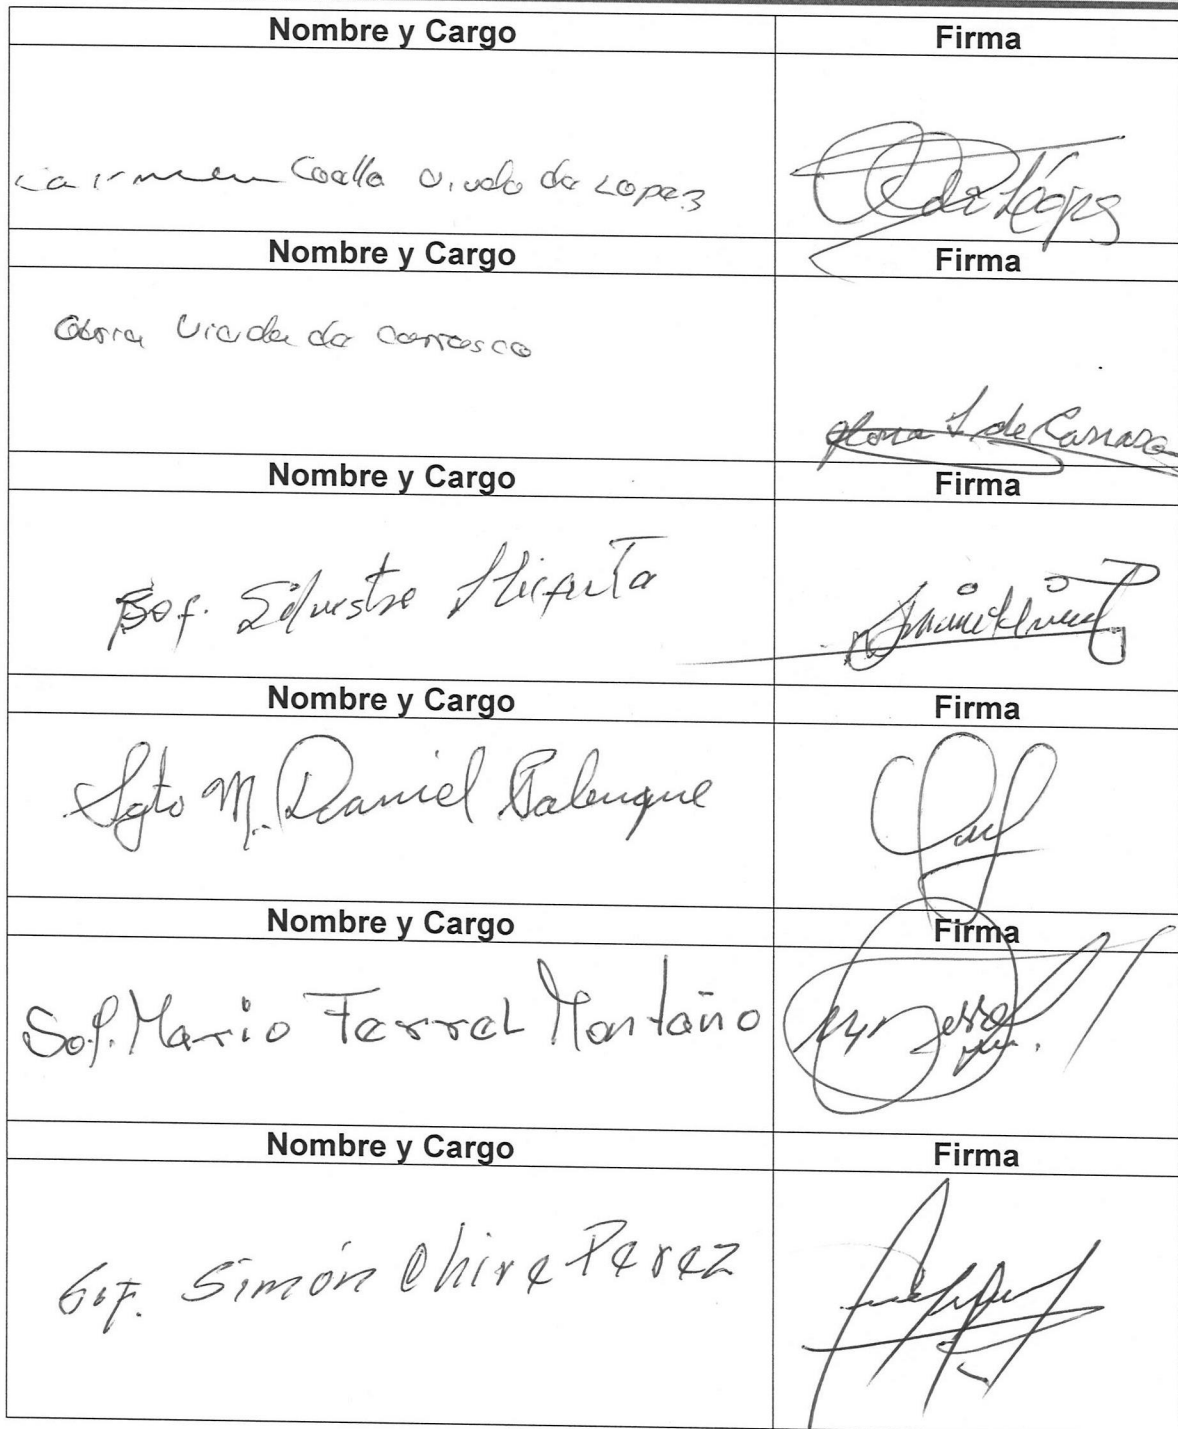 Nombre y Cargo Firma
Carmen Coella Viuda de Lopez de López
Nombre y Cargo Firma
Gloria Viuda de Carrasco Gloria de Carrasco
Nombre y Cargo Firma
Sof. Silvestre
Nombre y Cargo Firma
Sgto M. Daniel Palenque
Nombre y Cargo Firma
Sof. Mario Ferrel Montaño
Nombre y Cargo Firma
Sof. Simón Chire Perez